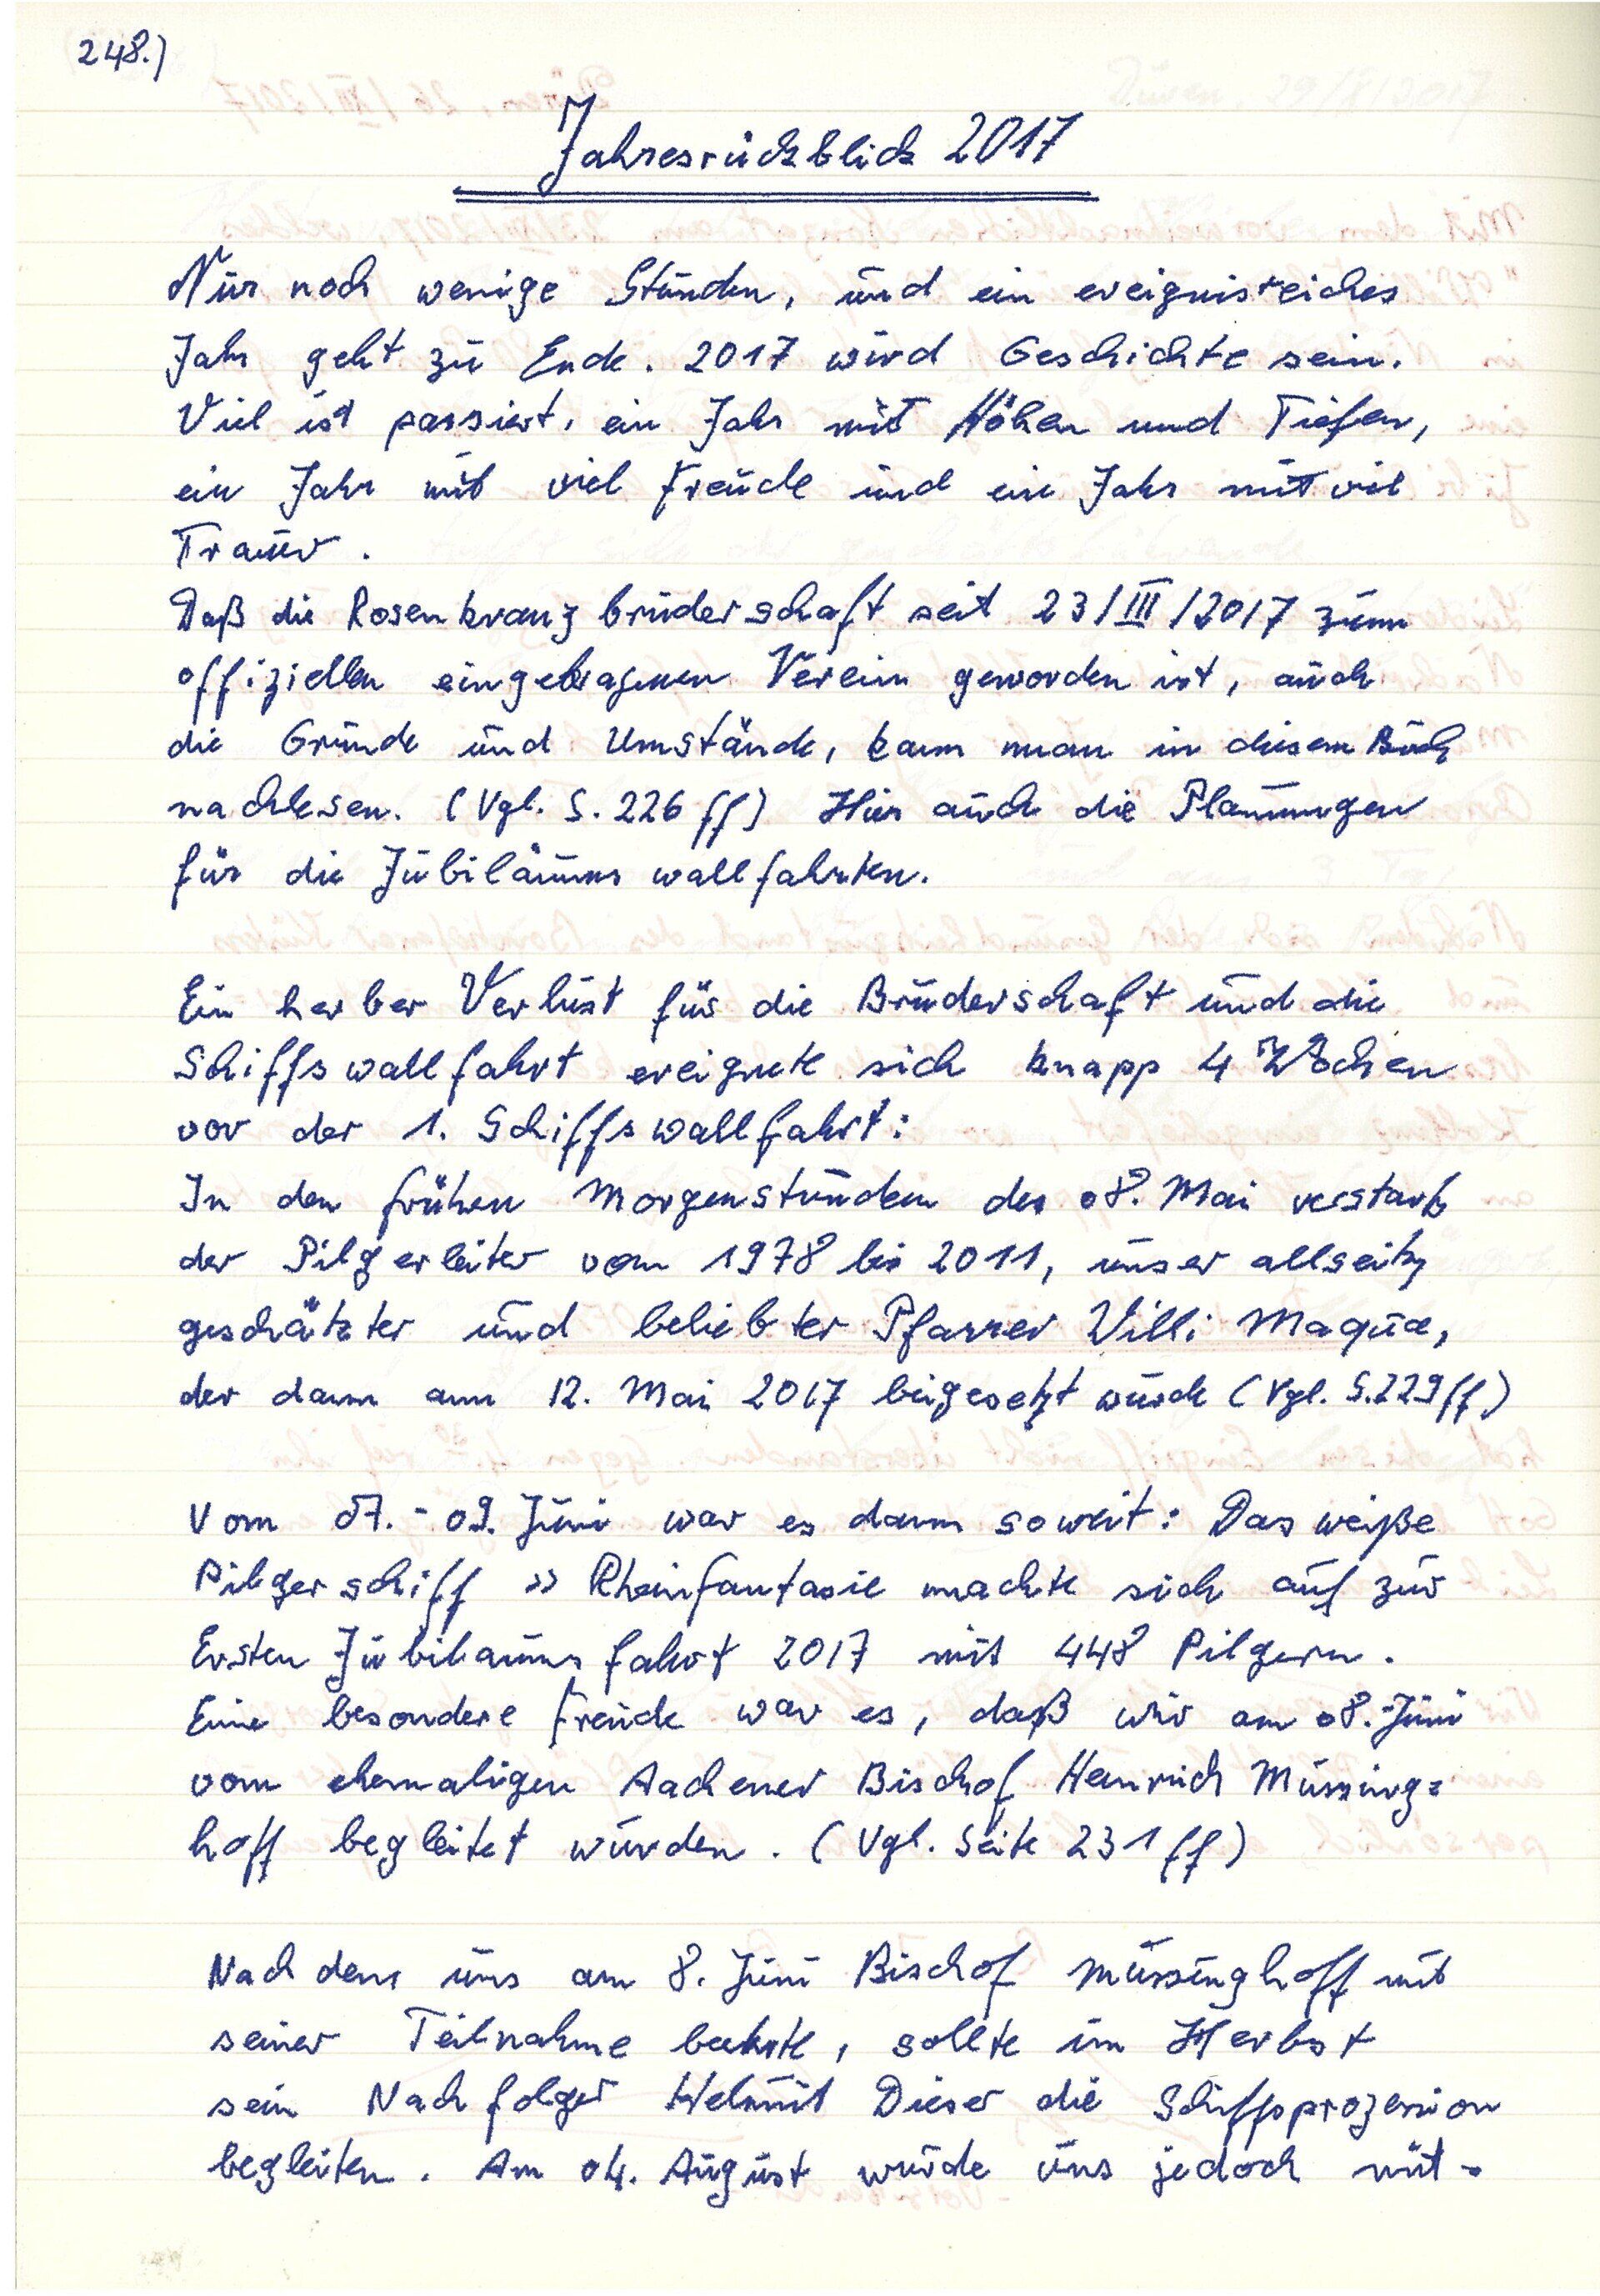 248.)
Jahresrückblick 2017
Nur noch wenige Stunden, und ein ereignisreiches
Jahr geht zu Ende. 2017 wird Geschichte sein.
Viel ist passiert, ein Jahr mit Höhen und Tiefen,
ein Jahr mit viel Freude und ein Jahr mit viel
Trauer.
Daß die Rosenkranzbruderschaft seit 23/III/2017 zum
offiziellen eingetragenen Verein geworden ist, auch
die Gründe und Umstände, kann man in diesem Buch
nachlesen. (Vgl. S. 226 ff) Hier auch die Planungen
für die Jubiläumswallfahrten.
Ein herber Verlust für die Bruderschaft und die
Schiffswallfahrt ereignete sich knapp 4 Wochen
vor der 1. Schiffswallfahrt:
In den frühen Morgenstunden des 08. Mai verstarb
der Pilgerleiter von 1978 bis 2011, unser allseitz
geschätzter und beliebter Pfarrer Willi Maqua,
der dann am 12. Mai 2017 beigesetzt wurde (Vgl. S. 229 ff)
Vom 07. - 09. Juni war es dann soweit: Das weiße
Pilgerschiff » Rheinfantasie machte sich auf zur
Ersten Jubiläumsfahrt 2017 mit 448 Pilgern.
Eine besondere Freude war es, daß wir am 08. Juni
vom ehemaligen Aachener Bischof Heinrich Mussing=
hoff begleitet wurden. (Vgl. Seite 231 ff)
Nachdem uns am 8. Juni Bischof Mussinghoff mit
seiner Teilnahme beehrte, sollte im Herbst
sein Nachfolger Helmut Dieser die Schiffsprozession
begleiten. Am 04. August wurde uns jedoch mit-